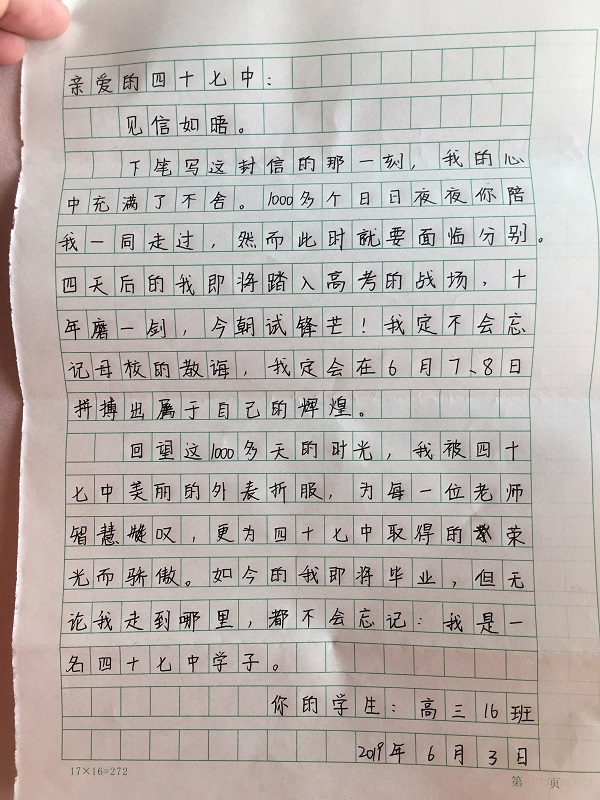 亲爱的四十七中：
见信如晤。
下笔写这封信的那一刻，我的心
中充满了不舍。1000多个日日夜夜你陪
我一同走过，然而此时就要面临分别。
四天后的我即将踏入高考的战场，十
年磨一剑，今朝试锋芒！我定不会忘
记母校的教诲，我定会在6月7、8日
拼搏出属于自己的辉煌。
回望这1000多天的时光，我被四十
七中美丽的外表折服，为每一位老师
智慧叹，更为四十七中取得的荣
光而骄傲。如今的我即将毕业，但无
论我走到哪里，都不会忘记：我是一
名四十七中学子。
你的学生：高三16班
2019年6月3日
17×16=272
第 页